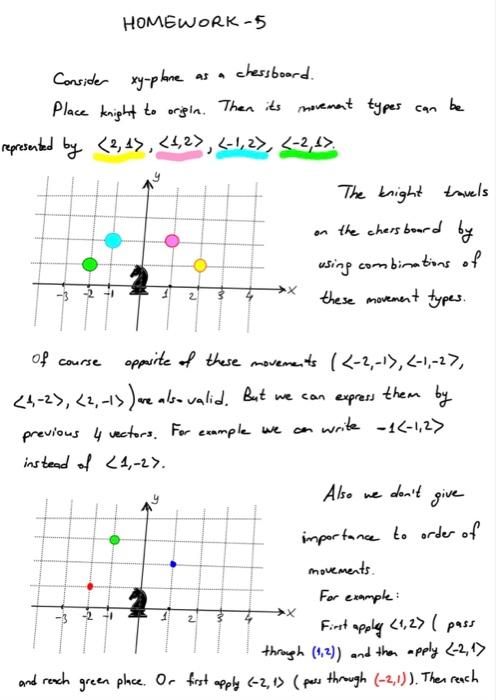 HOMEWORK-5
Consider xy-plane as a chessboard.
Place knight to origin. Then its movement types can be
represented by <2,1>, <1,2>, <-1,2>, <-2,1>.
y
The knight travels
on the chessboard by
using combinations of
these movement types.
-3 -2 -1 1 2 3 4 x
Of course opposite of these movements (<-2,-1>, <-1,-2>,
<1,-2>, <2,-1>) are also valid. But we can express them by
previous 4 vectors. For example we can write -1<-1,2>
instead of <1,-2>.
y
Also we don't give
importance to order of
movements.
For example:
-3 -2 -1 1 2 3 4 x
First apply <1,2> (pass
through (1,2)) and then apply <-2,1>
and reach green place. Or first apply <-2,1> (pass through (-2,1)). Then reach